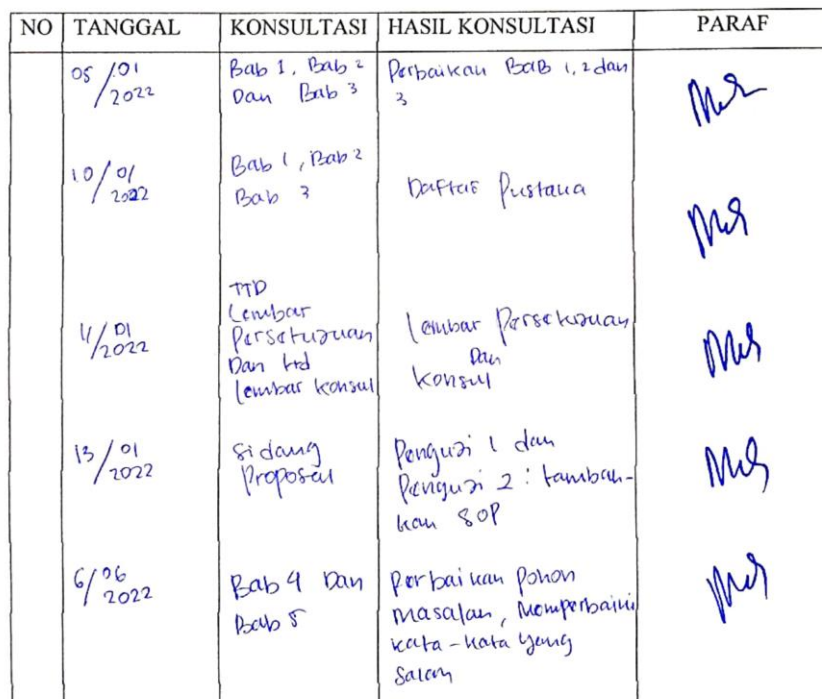 NO TANGGAL KONSULTASI HASIL KONSULTASI PARAF
05/01 2022
Bab 1, Bab 2
Dan Bab 3
Perbaikan BaB 1, 2 dan
3
10/01 2022
Bab 1, Bab 2
Bab 3
Daftar Pustaka
11/01 2022
TTD
Lembar
Persetujuan
Dan ttd
lembar konsul
lembar Persetujuan
Dan
Konsul
13/01 2022
Sidang
Proposal
Penguji 1 dan
Penguji 2 : tambah-
kan SOP
6/06 2022
Bab 4 Dan
Bab 5
Perbaikan Pohon
Masalah, Memperbaiki
kata-kata yang
salah